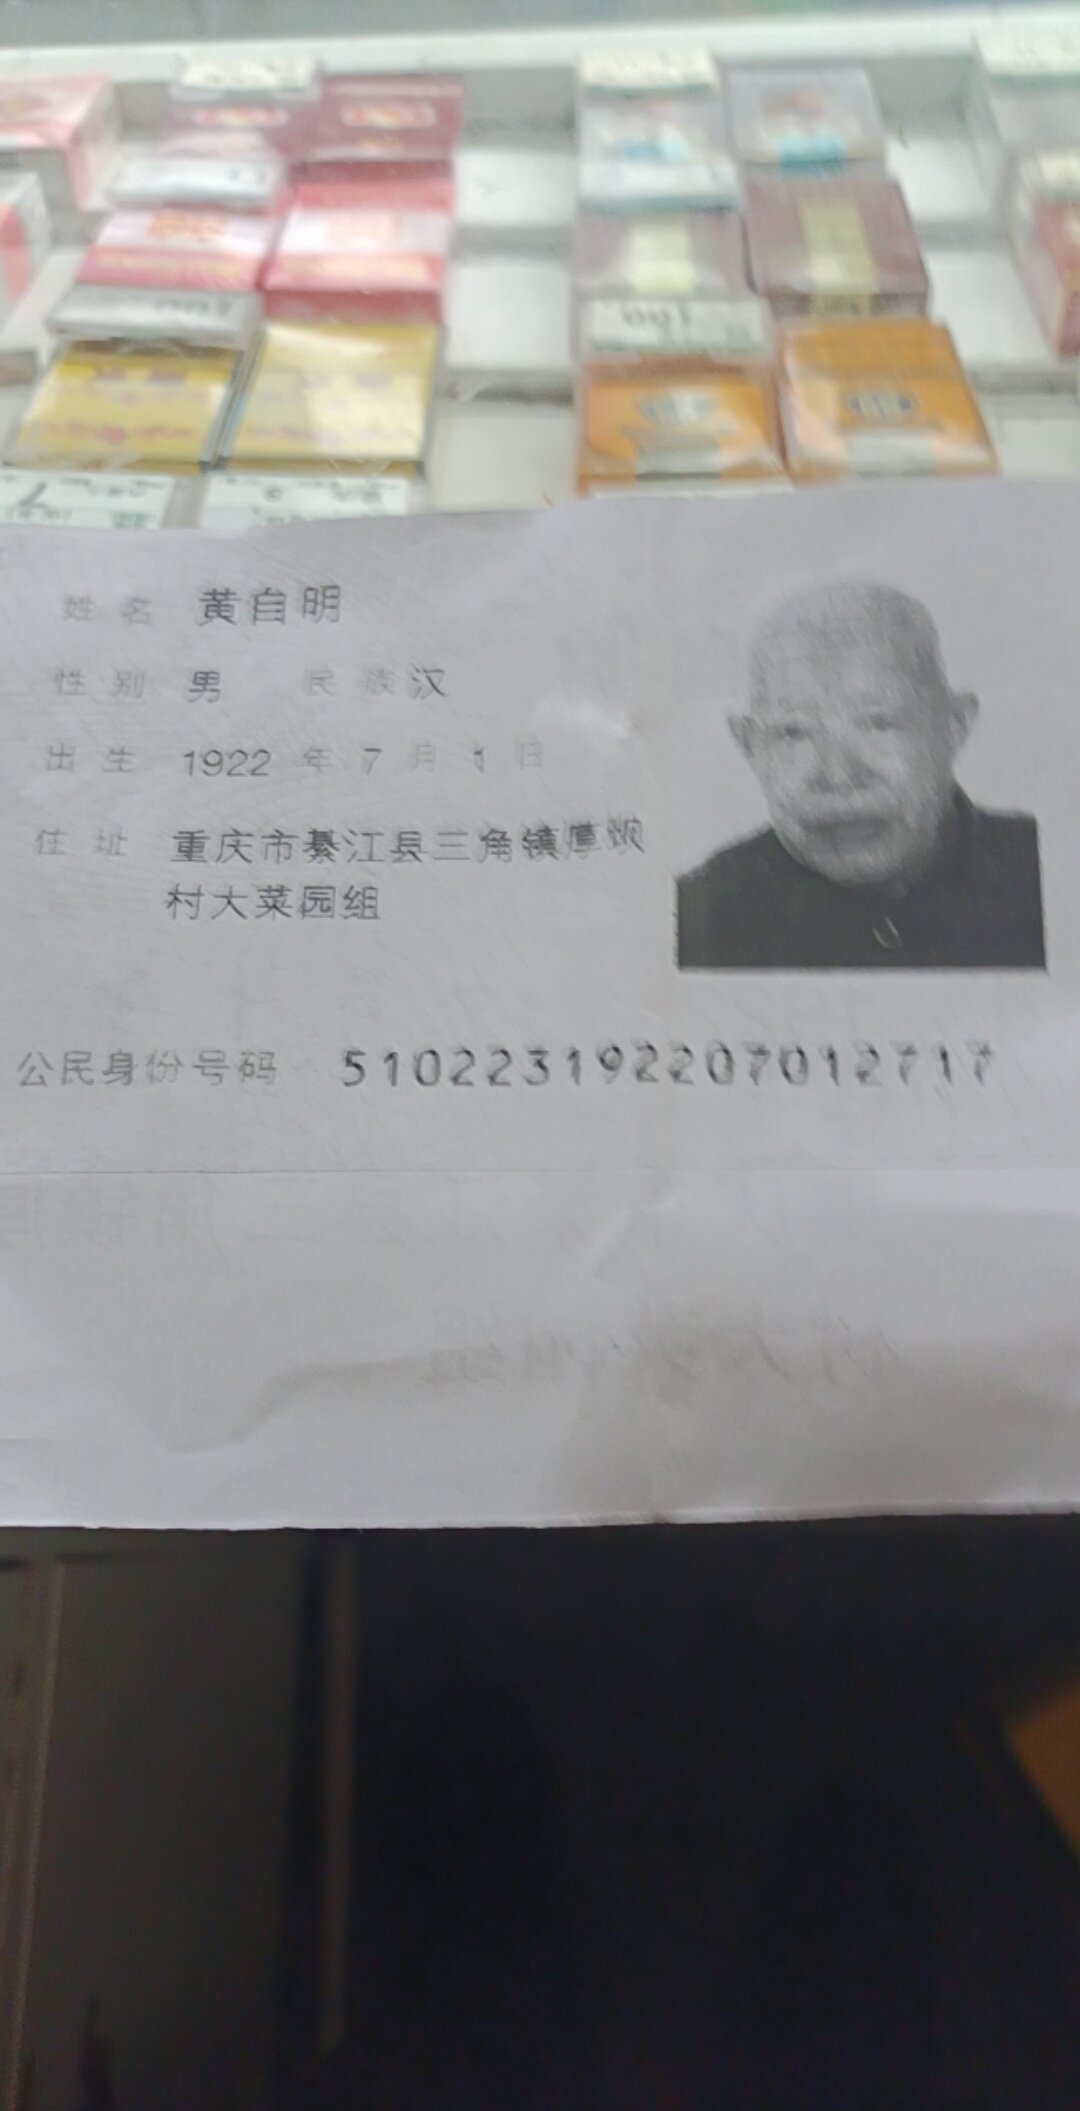 姓名 黄自明
性别 男 民族 汉
出生 1922 年 7 月 1 日
住址 重庆市綦江县三角镇厚坝
村大菜园组
公民身份号码 510223192207012717